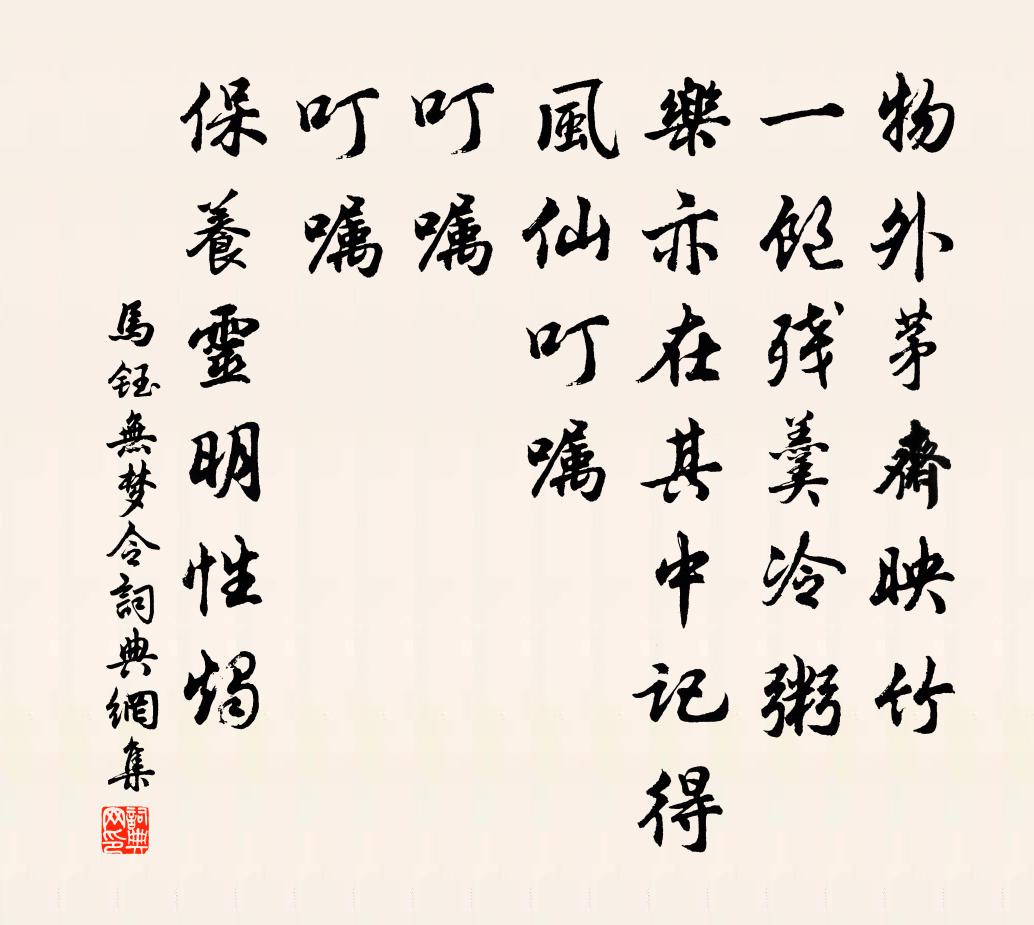 物外茅齋映竹
一飽残羹冷粥
樂亦在其中記得
風仙叮嘱
叮嘱
叮嘱
保養靈明性燭
馬鈺無梦令詞典網集
詞典
网印